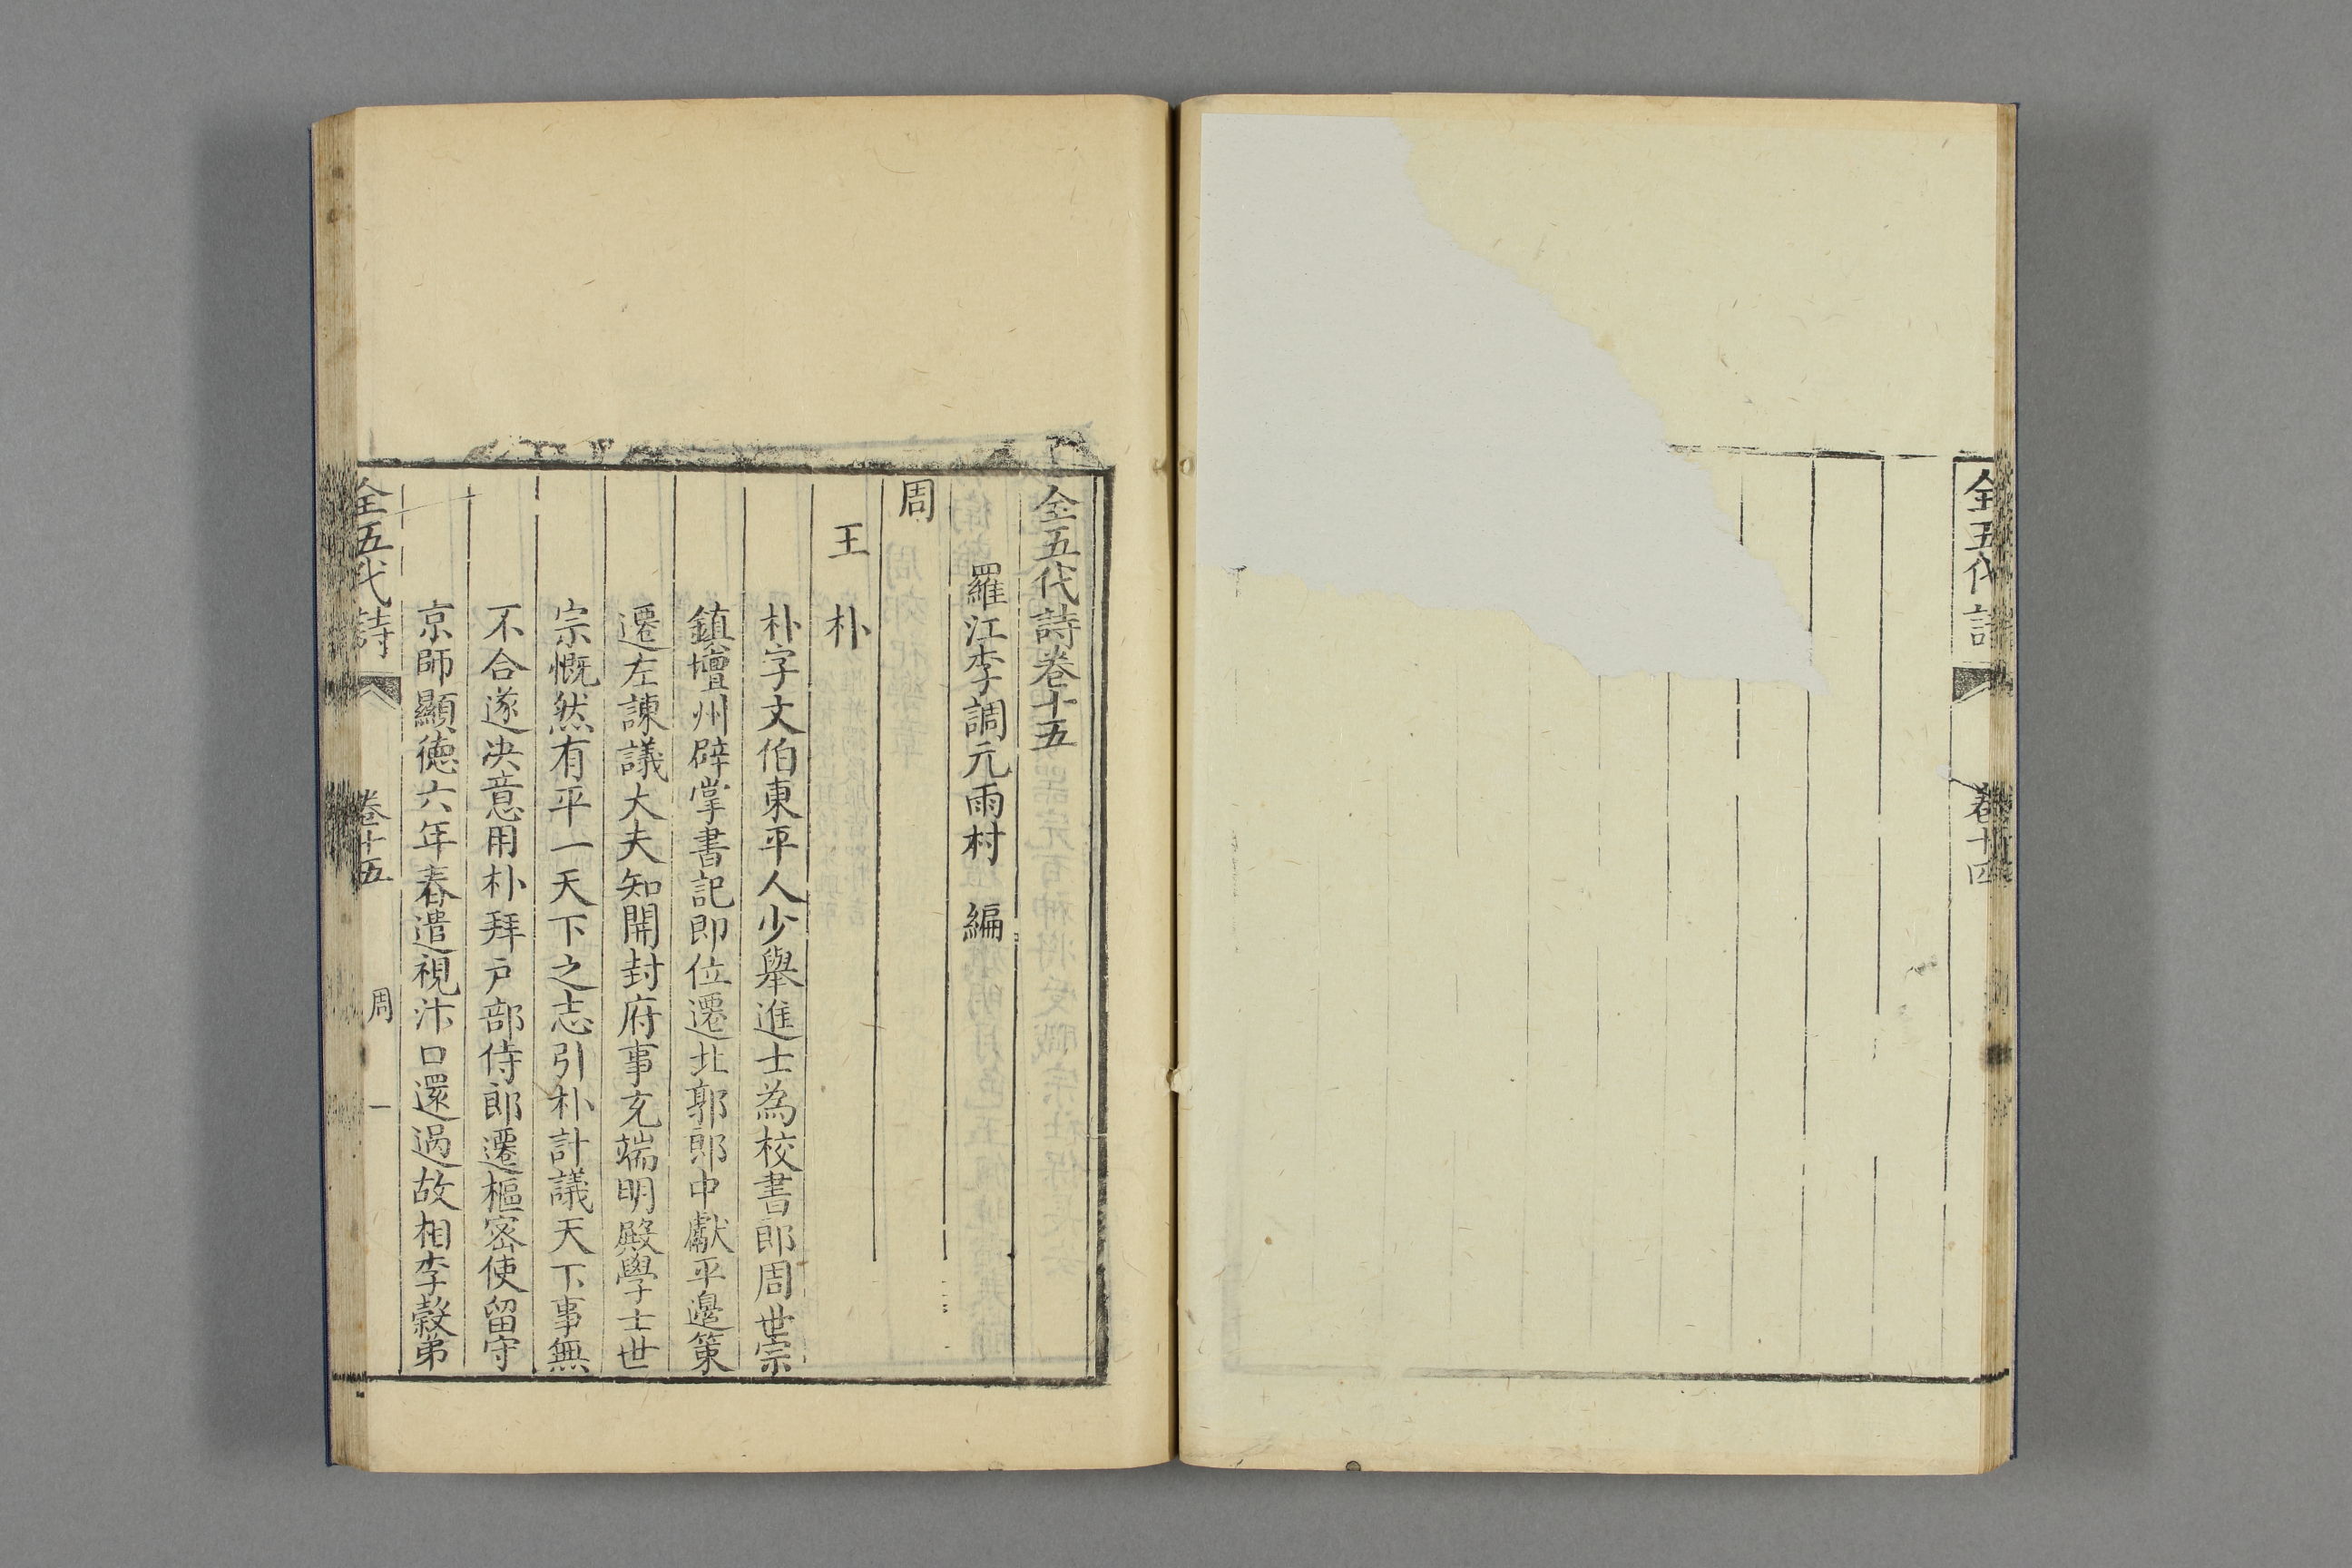 全五代詩
卷十四
全五代詩卷十五
羅江李調元雨村 編
周
王 朴
朴字文伯東平人少舉進士為校書郎周世宗
鎮壇州辟掌書記即位遷北郭郎中獻平邊策
遷左諫議大夫知開封府事充端明殿學士世
宗慨然有平一天下之志引朴計議天下事無
不合遂決意用朴拜户部侍郎遷樞密使留守
京師顯德六年春遣視汴口還過故相李穀第
全五代詩
卷十五
周
一